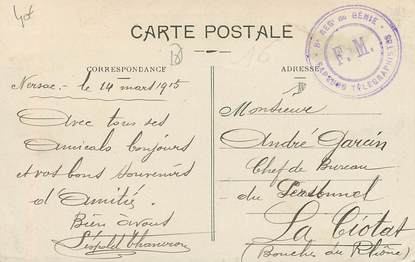 CARTE POSTALE
CORRESPONDANCE
Nersac, le 14 mars 1915
Avec tous ses
amicals bonjours
et vos bons souvenirs
d'amitié.
Bien à vous
Léopold
ADRESSE
Monsieur
André Garcin
Chef de Bureau
du Personnel
La Ciotat
(Bouches du Rhône)
8e REGt du GÉNIE
SAPEURS TÉLÉGRAPHISTES
F. M.